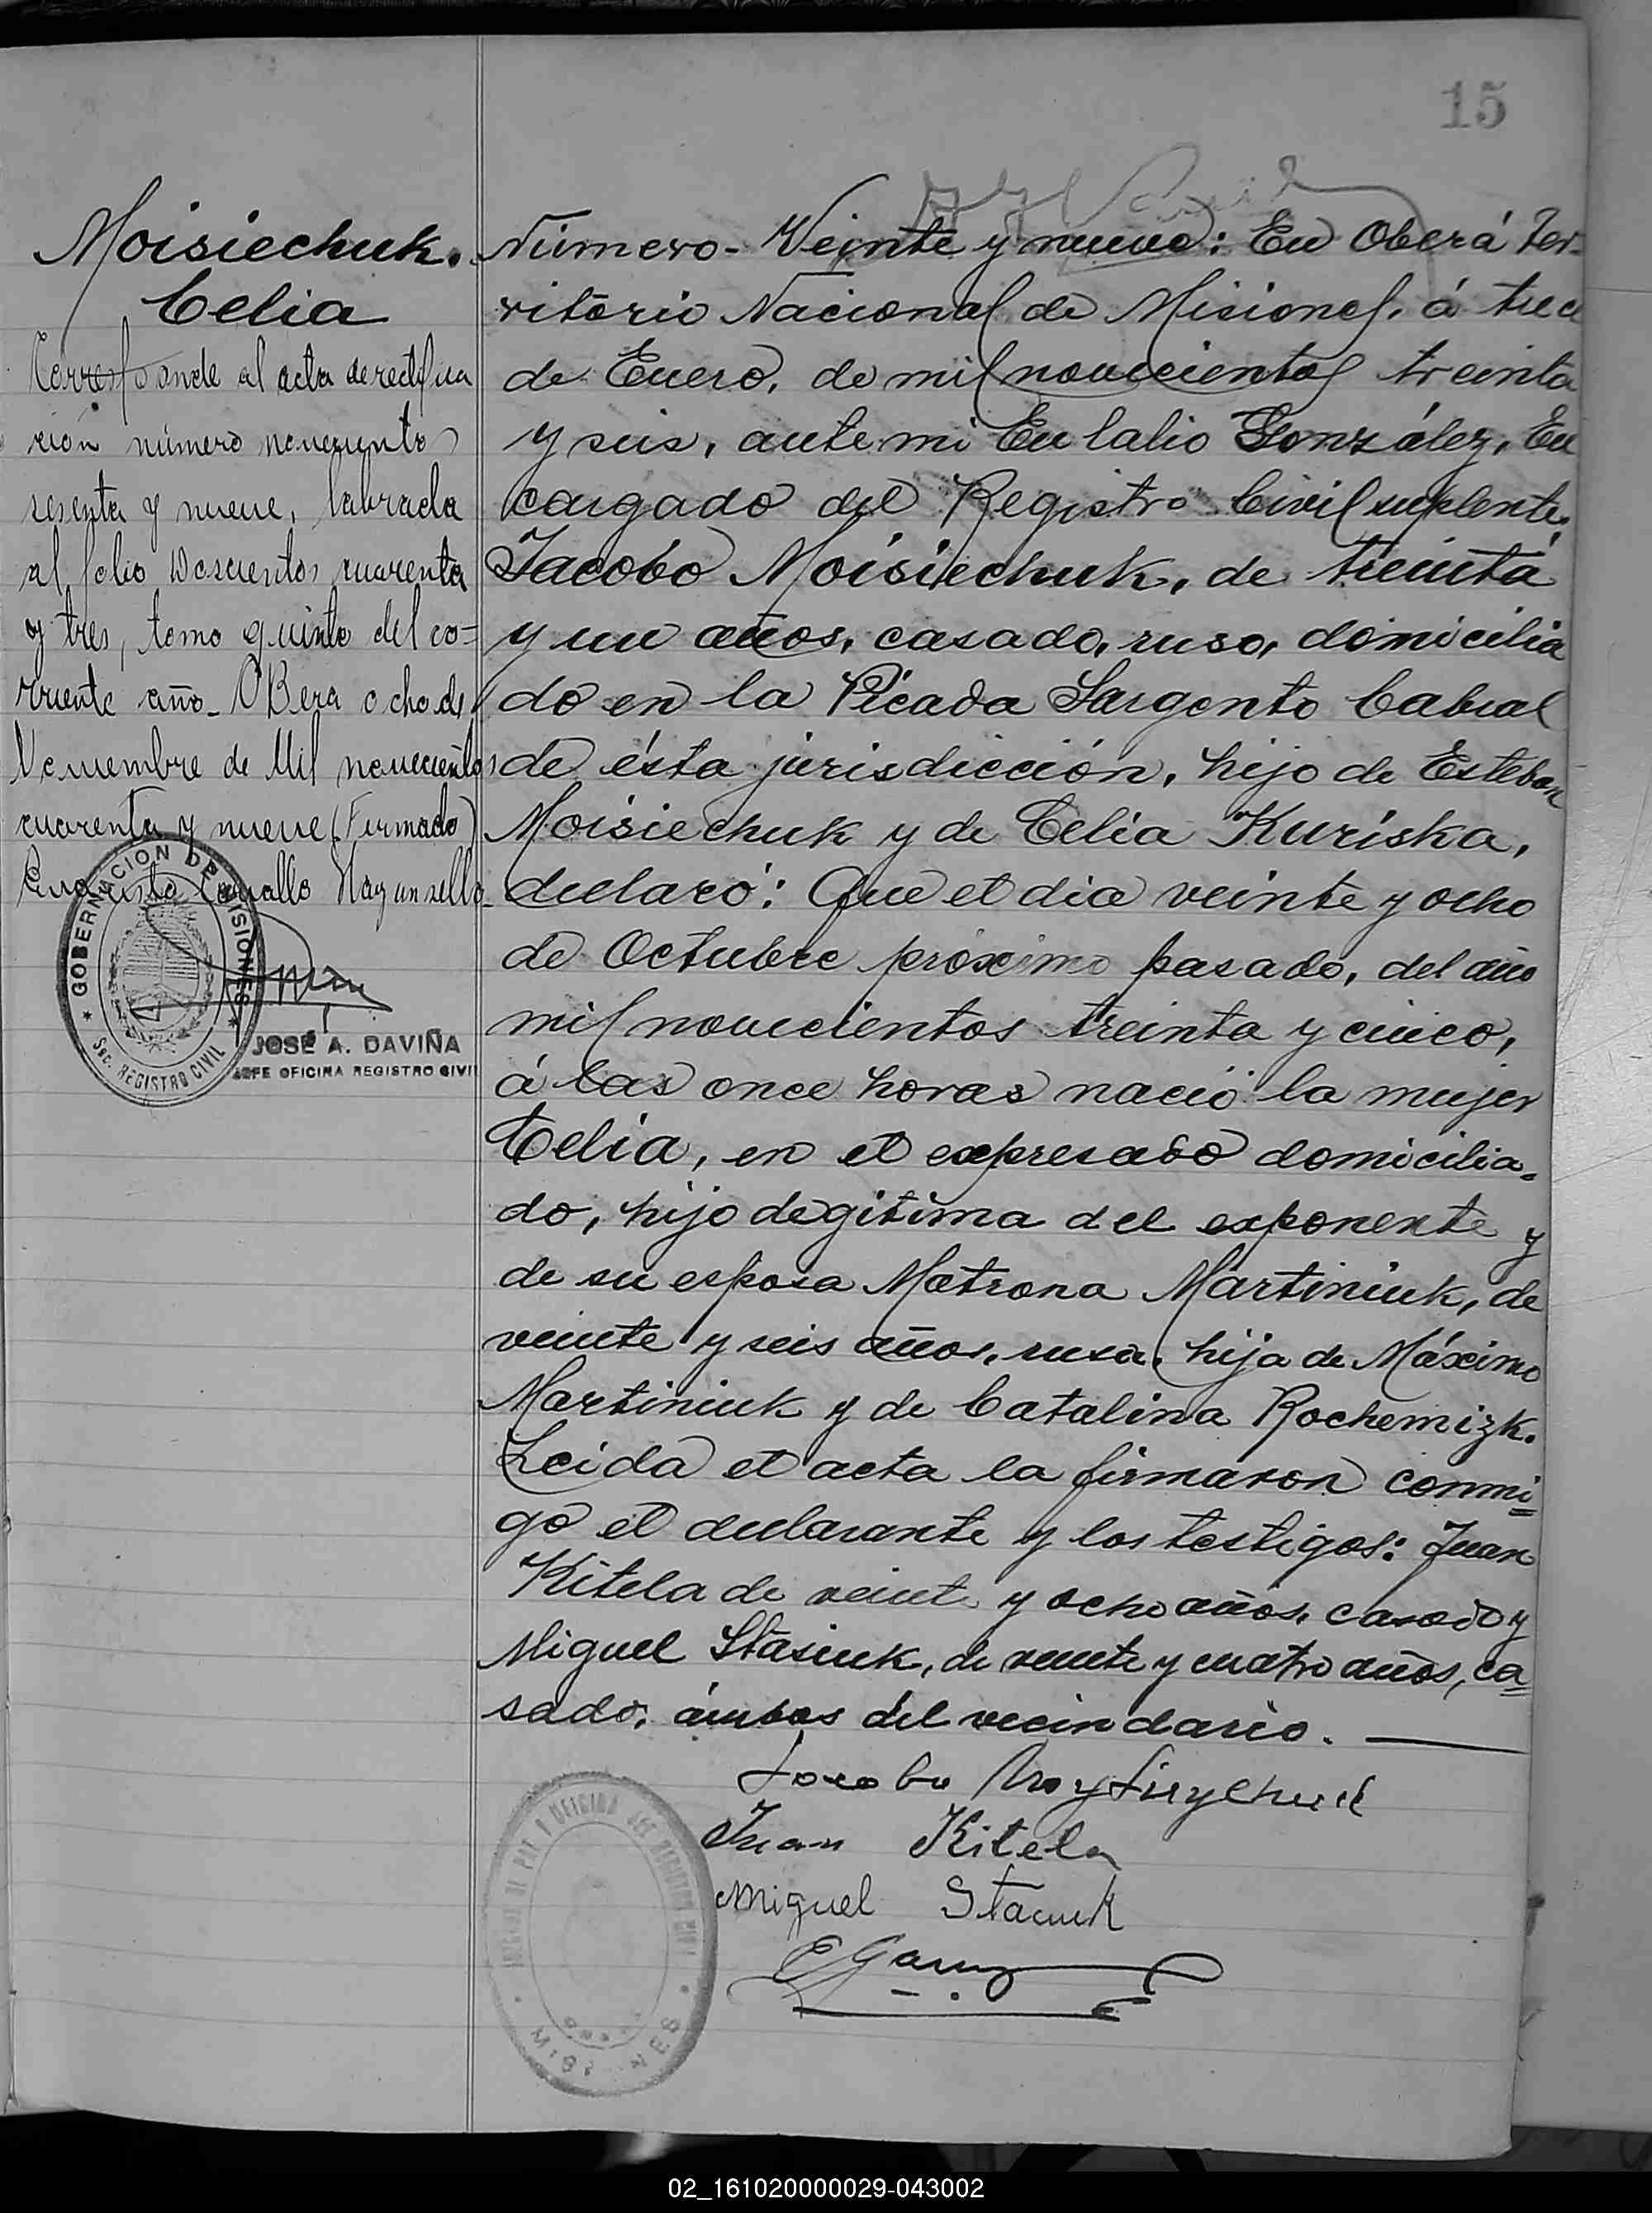 15
Moisiechuk.
Celia
Corresponde al acta de rectifica
cion número novecientos
sesenta y nueve, labrada
al folio Doscientos cuarenta
y tres, tomo quinto del co=
rriente año_ OBera ocho de
Noviembre de Mil novecientos
cuarenta y nueve (Firmado)
Carvallo Hay un sello_
GOBERNACION DE MISIONES
Sec. REGISTRO CIVIL
JOSÉ A. DAVIÑA
JEFE OFICINA REGISTRO CIVIL
Número- Veinte y nueve: En Oberá Ter-
ritorio Nacional de Misiones, á trece
de Enero, de mil novecientos treinta
y seis, ante mi Eulalio González, En
cargado del Registro Civil suplente,
Jacobo Moisiechuk, de treinta
y un años, casado, ruso, domicilia
do en la Picada Sargento Cabral
de ésta jurisdicción, hijo de Esteban
Moisiechuk y de Celia Kuriska,
declaró: Que el dia veinte y ocho
de Octubre próximo pasado, del año
mil novecientos treinta y cinco,
á las once horas nació la mujer
Celia, en el expresado domicilia=
do, hijo legitima del exponente y
de su esposa Matrona Martiniuk, de
veinte y seis años, rusa, hija de Máximo
Martiniuk y de Catalina Rochemizk.
Leida el acta la firmaron conmi=
go el declarante y los testigos: Juan
Kitela de veinte y ocho años, casado y
Miguel Stasiuk, de veinte y cuatro años, ca=
sado, ámbos del vecindario.
Juan Kitela
Miguel Staciuk
MISIONES
02_161020000029-043002